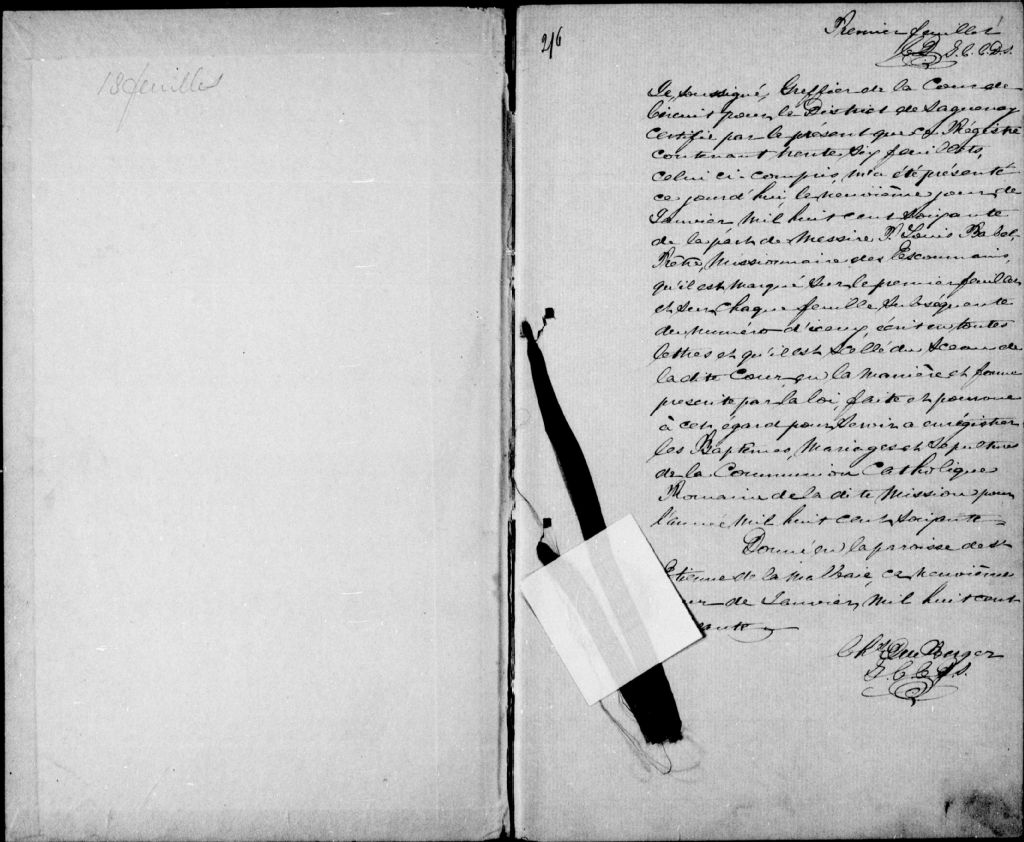 18 feuilles
216
Premier feuillet
G. C. C. D. S.
Je, soussigné, Greffier de la Cour de
Circuit pour le District de Saguenay
certifie par le présent que ce Régistre
contenant trente six feuillets,
celui ci compris, m'a été présenté
ce jourd'hui, le neuvième jour de
Janvier mil huit cent soixante
de la part de Messire P. Louis Babel,
Prêtre, Missionnaire des Escoumains,
qu'il est marqué sur le premier feuillet
et sur chaque feuille subséquente
du numéro d'iceux, écrit en toutes
lettres et qu'il est scellé du Sceau de
la dite Cour en la manière et forme
prescrite par la loi, faite et pourvue
à cet égard pour servir a enrégistrer
les Baptêmes, Mariages et Sepultures
de la Communion Catholique
Romaine de la dite Mission pour
l'année mil huit cent soixante
Donné en la paroisse de St
Etienne de la Malbaie, ce neuvième
de Janvier, mil huit cent
Chs Du Berger
G. C. C. D. S.